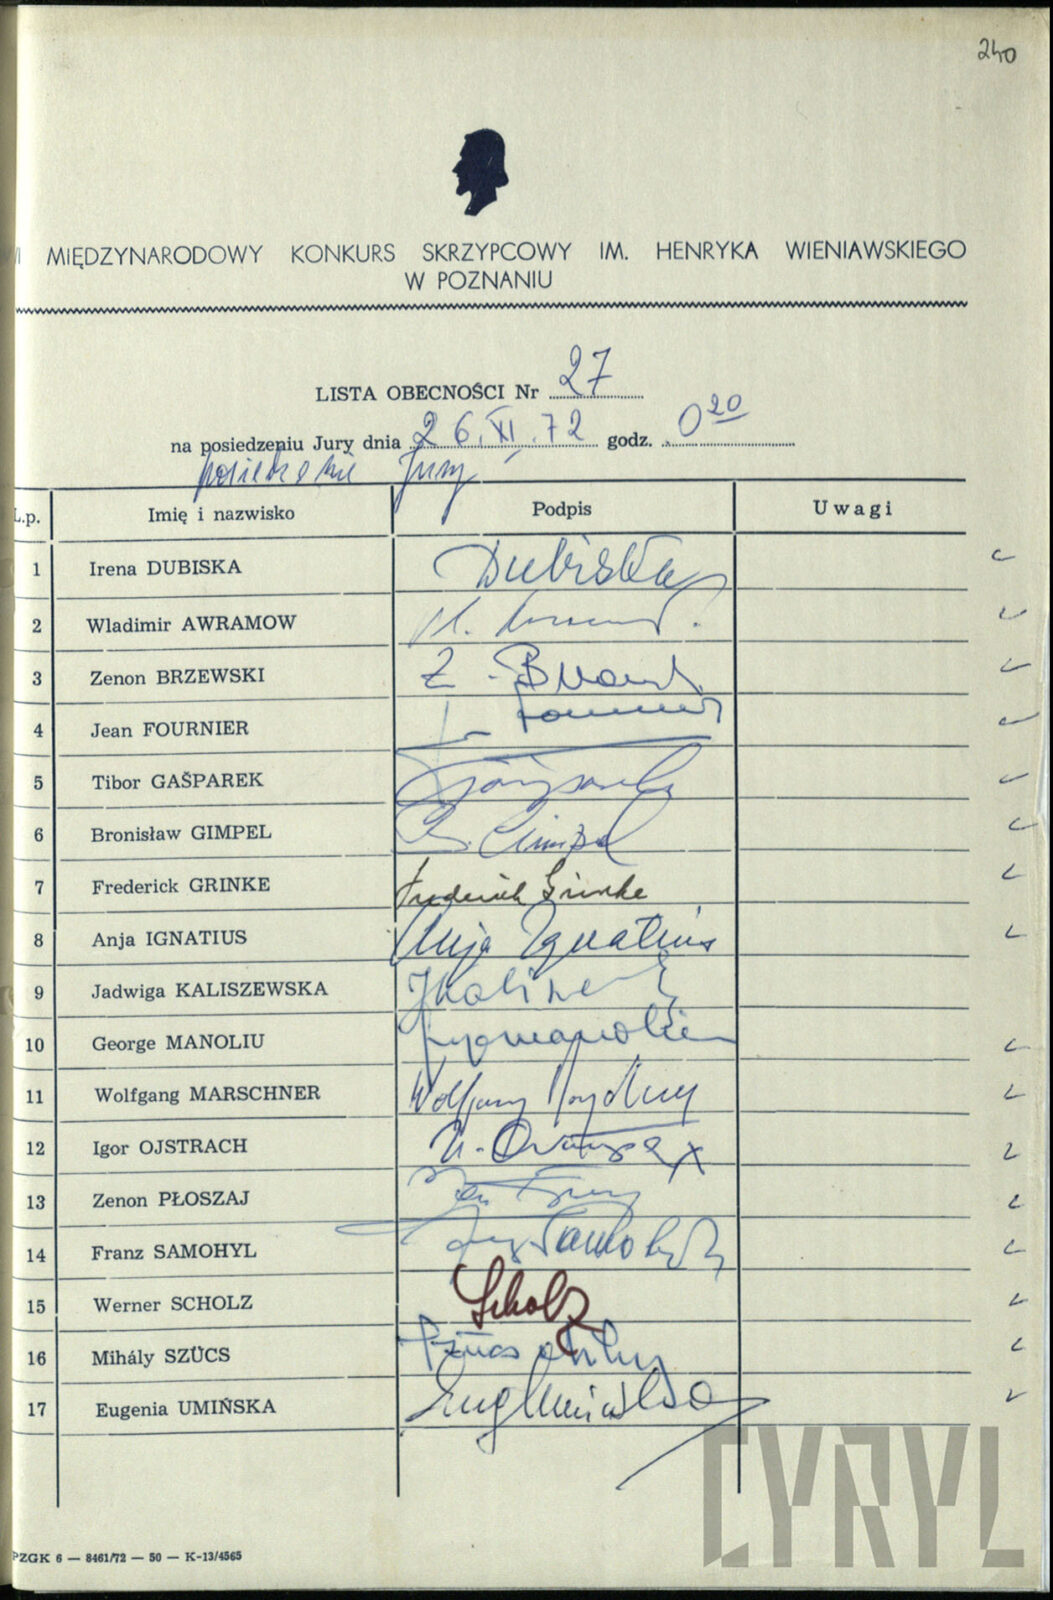 240
VI MIĘDZYNARODOWY KONKURS SKRZYPCOWY IM. HENRYKA WIENIAWSKIEGO
W POZNANIU
LISTA OBECNOŚCI Nr 27
na posiedzeniu Jury dnia 26. XI. 72 godz. 0 20
posiedzenie Jury
L.p. Imię i nazwisko Podpis Uwagi
1 Irena DUBISKA Dubiska
2 Wladimir AWRAMOW
3 Zenon BRZEWSKI Z.
4 Jean FOURNIER
5 Tibor GAŠPAREK
6 Bronisław GIMPEL B. Gimpel
7 Frederick GRINKE Frederick Grinke
8 Anja IGNATIUS Anja Ignatius
9 Jadwiga KALISZEWSKA
10 George MANOLIU
11 Wolfgang MARSCHNER Wolfgang
12 Igor OJSTRACH
13 Zenon PŁOSZAJ
14 Franz SAMOHYL Samohyl
15 Werner SCHOLZ Scholz
16 Mihály SZÜCS
17 Eugenia UMIŃSKA Eug Umińska
PZGK 6 — 8461/72 — 50 — K-13/4565
CYRYL